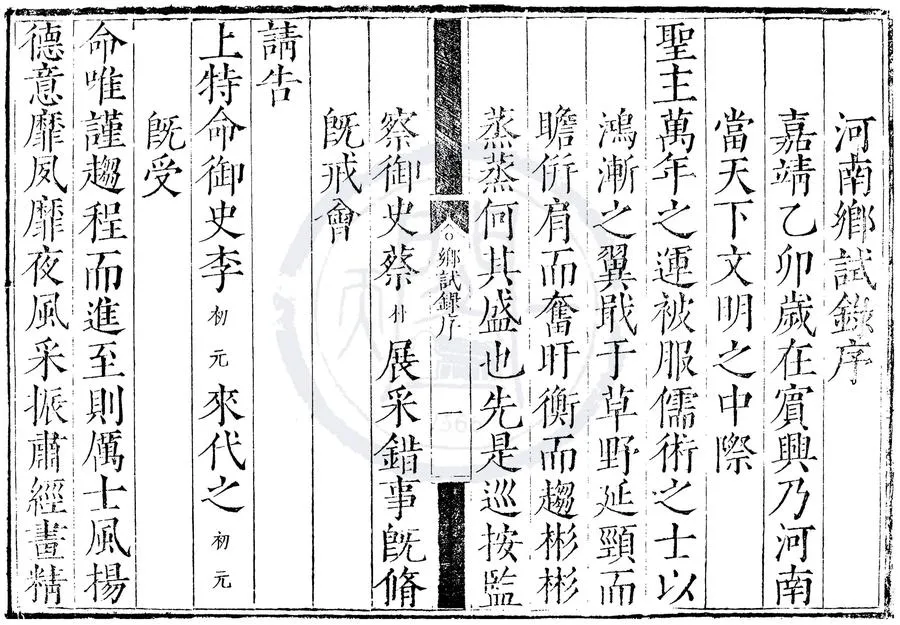 河南鄉試錄序
嘉靖乙卯歲在賔興乃河南
當天下文明之中際
聖主萬年之運被服儒術之士以
鴻漸之翼戢于草野延頸而
瞻併肩而奮盱衡而趨彬彬
蒸蒸何其盛也先是巡按監
鄉試錄序 一
察御史蔡 朴 展采錯事旣脩
旣戒會
請告
上特命御史李 初元 來代之 初元
旣受
命唯謹趨程而進至則厲士風揚
德意靡夙靡夜風采振肅經畫精